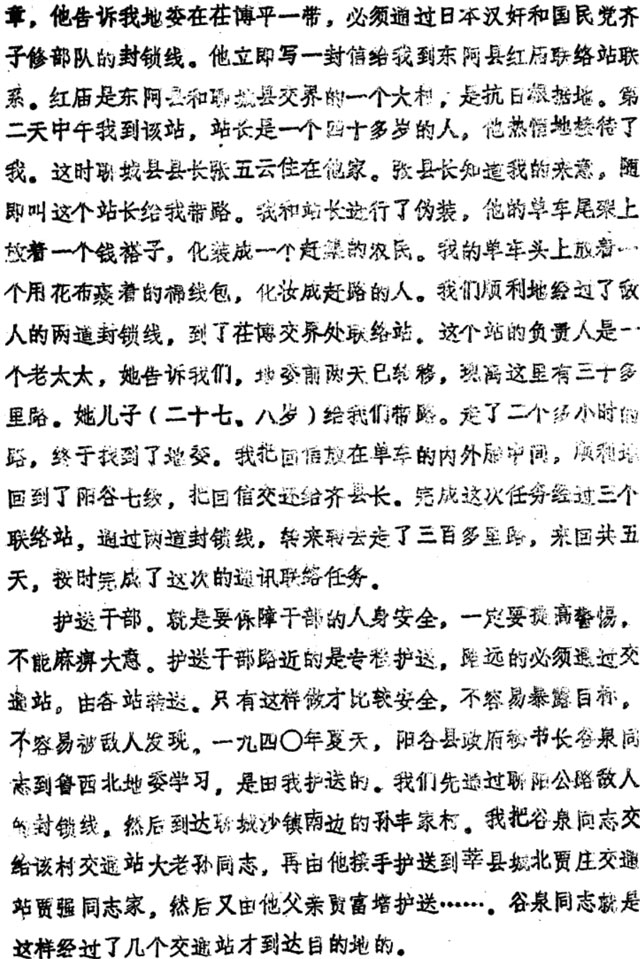 章，他告诉我地委在茌博平一带，必须通过日本汉奸和国民党齐
子修部队的封锁线。他立即写一封信给我到东阿县红庙联络站联
系。红庙是东阿县和聊城县交界的一个大村，是抗日根据地。第
二天中午我到该站，站长是一个四十多岁的人，他热情地接待了
我。这时聊城县县长张五云住在他家。张县长知道我的来意，随
即叫这个站长给我带路。我和站长进行了伪装，他的单车尾架上
放着一个钱褡子，化装成一个赶集的农民。我的单车头上放着一
个用花布裹着的棉线包，化妆成赶路的人。我们顺利地经过了敌
人的两道封锁线，到了茌博交界处联络站。这个站的负责人是一
个老太太，她告诉我们，地委前两天已转移，现离这里有三十多
里路。她儿子（二十七、八岁）给我们带路。走了二个多小时的
路，终于找到了地委。我把回信放在单车的内外胎中间，顺利地
回到了阳谷七级，把回信交还给齐县长。完成这次任务经过三个
联络站，通过两道封锁线，转来转去走了三百多里路，来回共五
天，按时完成了这次的通讯联络任务。
护送干部。就是要保障干部的人身安全，一定要提高警惕，
不能麻痹大意。护送干部路近的是专程护送，路远的必须通过交
通站。由各站转送。只有这样做才比较安全，不容易暴露目标，
不容易被敌人发现。一九四〇年夏天，阳谷县政府秘书长谷泉同
志到鲁西北地委学习，是由我护送的。我们先通过聊阳公路敌人
的封锁线，然后到达聊城沙镇南边的孙丰家村。我把谷泉同志交
给该村交通站大老孙同志，再由他接手护送到莘县城北贾庄交通
站贾强同志家，然后又由他父亲贾富培护送……。谷泉同志就是
这样经过了几个交通站才到达目的地的。